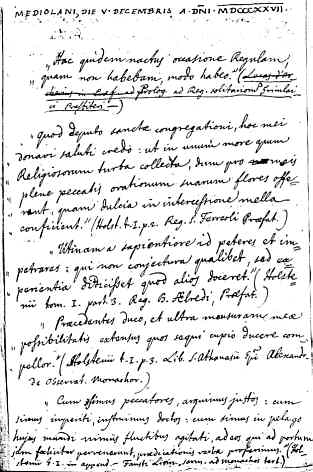 MEDIOLANI, DIE V. DECEMBRIS A. DNI. MDCCCXXVII.
„Hac quidem nactus occasione Regulam,
quam non habebam, modo habeo." (
ad Prolog. ad Reg. solitarior.
„quod deputo sanctæ congregationi, hoc mei
„donari saluti credo: ut in unum more quum
„Religiosorum turba collecta, dum pro nobis
„plene peccatis orationum suarum flores offe-
„runt, quam dulcia in intercessione mella
conficiunt." (Holst. t. I. p. 2. Reg. S. Ferreoli Præfat.)
„Utinam a sapientiore id peteres et im-
„petrares: qui non conjectura qualibet, sed ex-
„perientia didicisset quod alios doceret." (Holste-
nii tom. I. part. 3. Reg. B. Ælredi, Præfat.)
„Præcedentes duco, et ultra mensuram meæ
„possibilitatis extensus quos sequi cupio ducere com-
pellor." (Holstenii t. I. p. 3. Lib. S. Athanasii Epi. Alexandr.
de Observat. Monachor.)
„Cum simus peccatores, arguimus justos: cum
simus imperiti, instruimus doctos: cum simus in pelago
hujus mundi nimiis fluctibus agitati, ad eos qui ad portum
jam feliciter pervenerunt, prædicationis verba proferimus. (Hol-
stenii t. I. in append. Fausti serm. ad monachos)